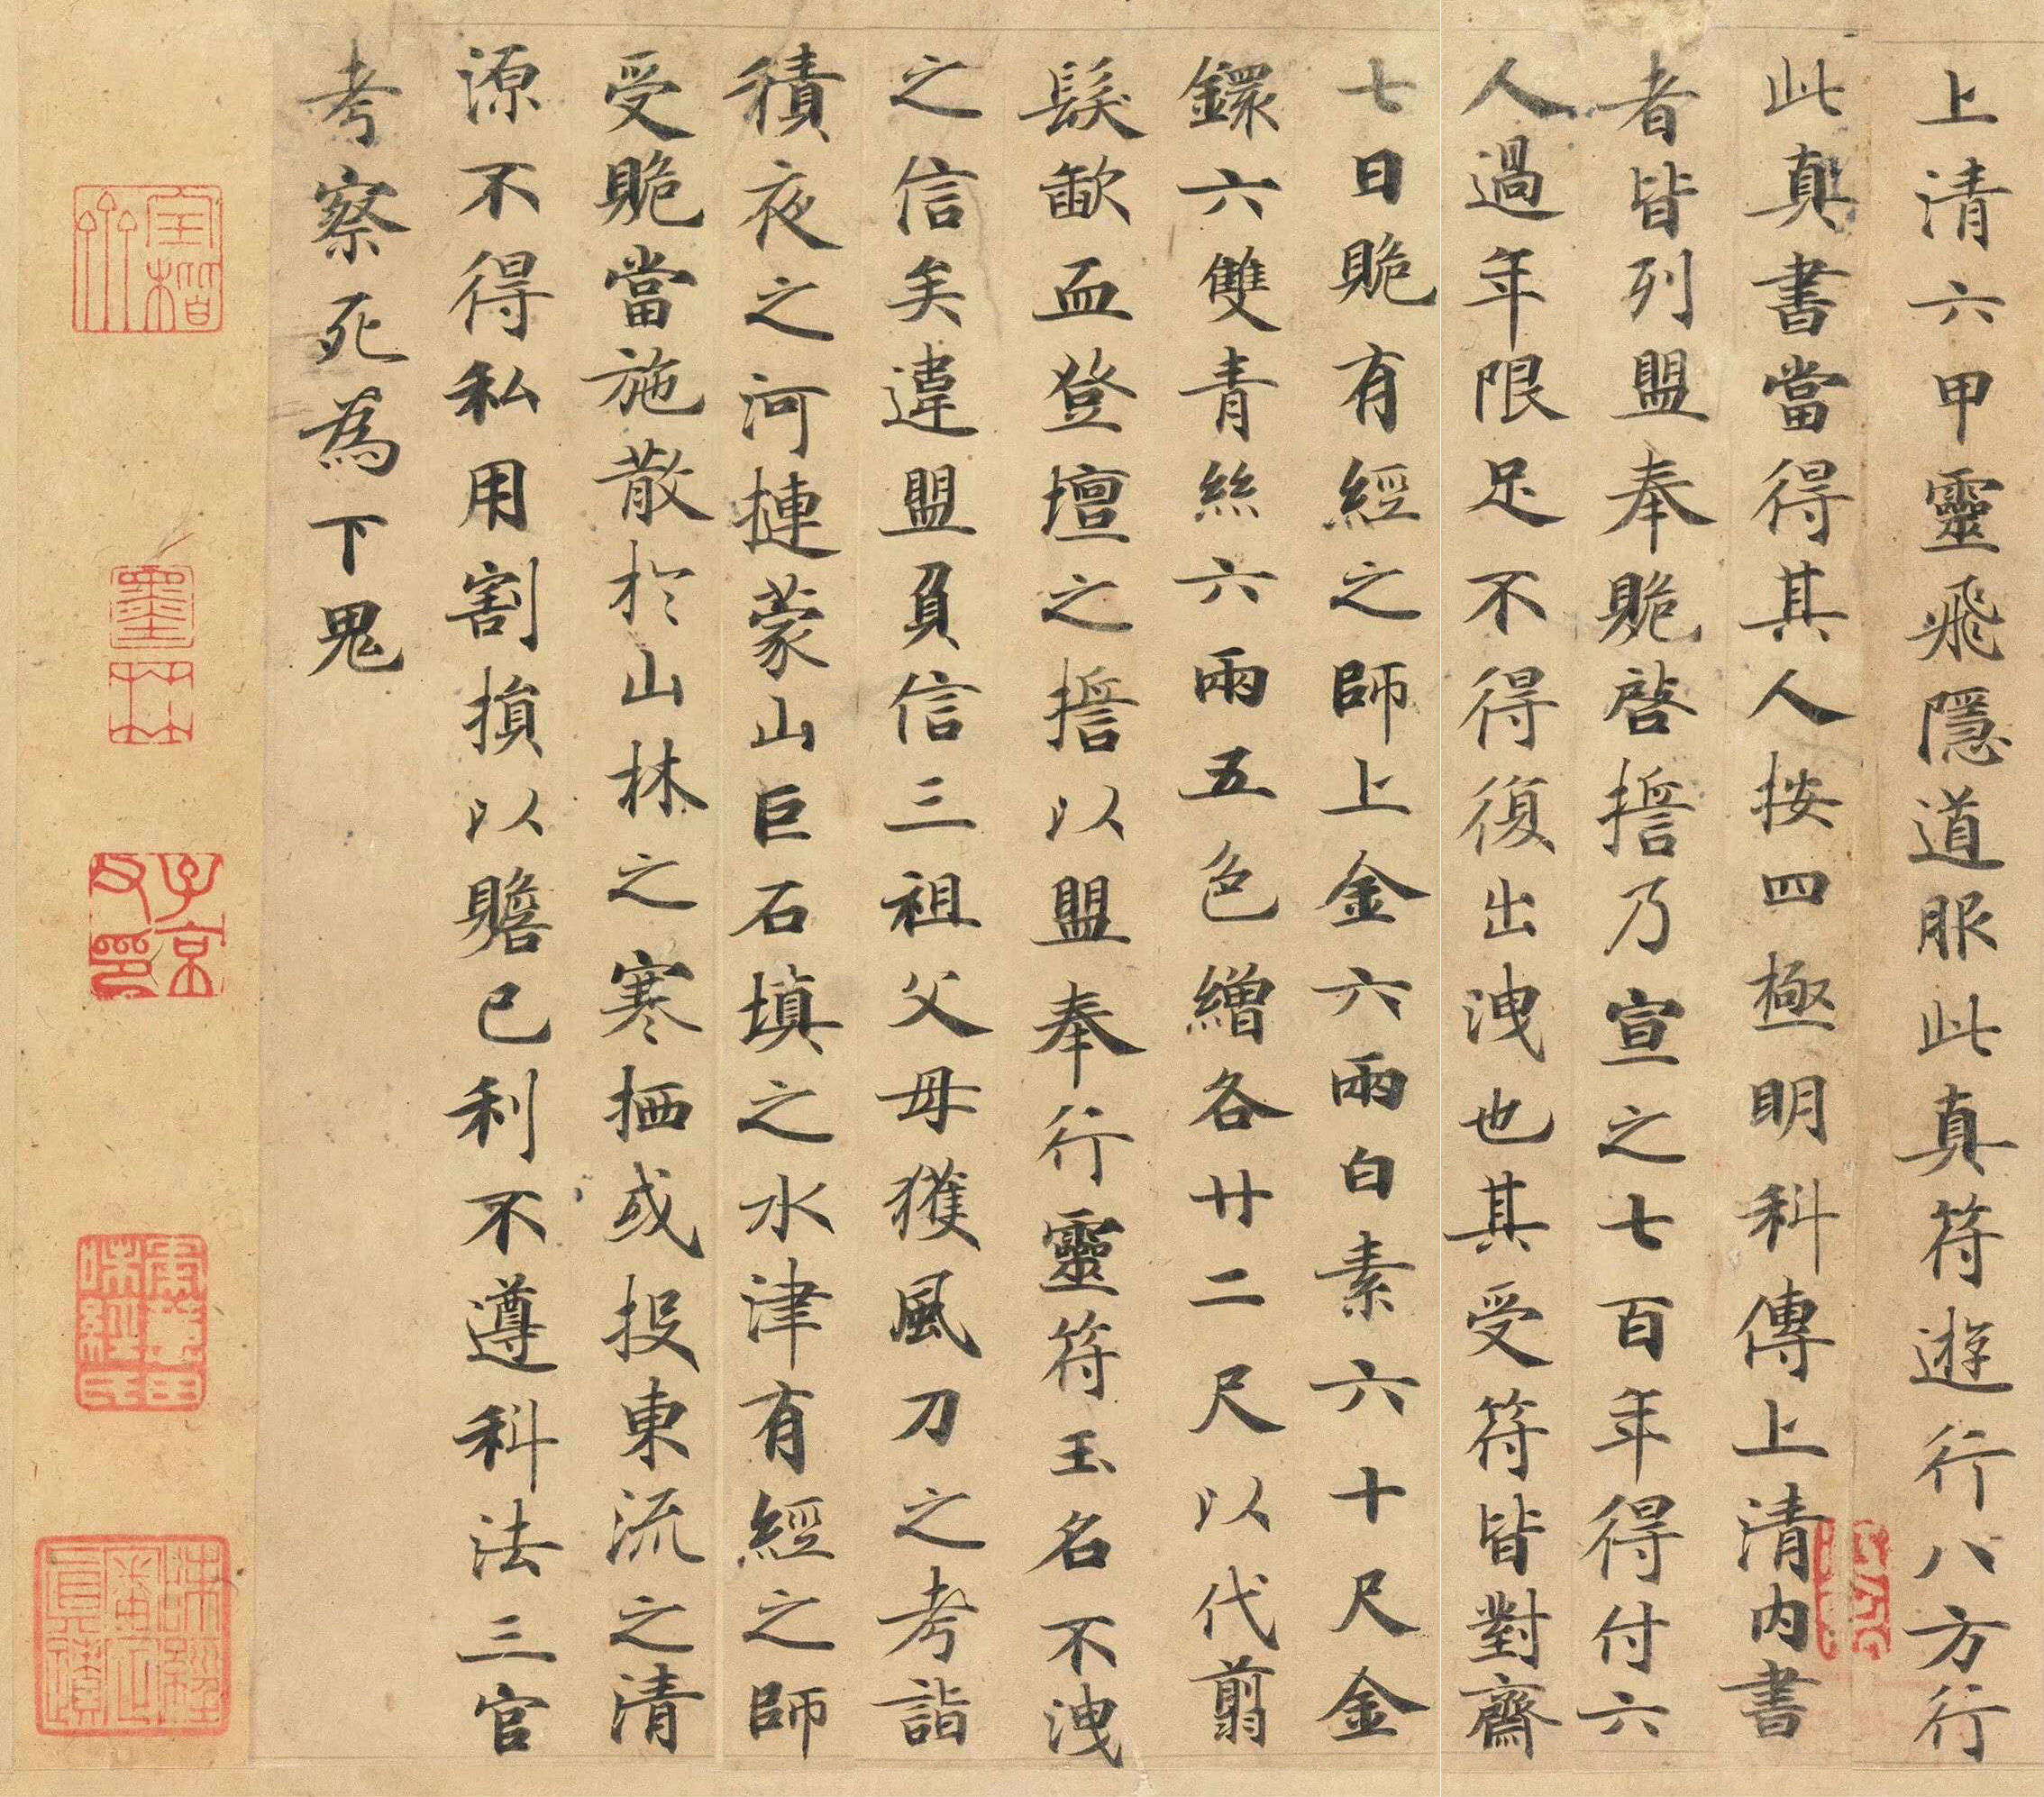 上清六甲靈飛隱道服此真符遊行八方行
此真書當得其人按四極明科傳上清内書
者皆列盟奉賝啓誓乃宣之七百年得付六
人過年限足不得復出洩也其受符皆對齋
七日賝有經之師上金六兩白素六十尺金
鐶六雙青絲六兩五色繒各廿二尺以代翦
髮歃血登壇之誓以盟奉行靈符玉名不洩
之信矣違盟負信三祖父母獲風刀之考詣
積夜之河摙蒙山巨石填之水津有經之師
受賝當施散於山林之寒栖或投東流之清
源不得私用割損以贍己利不遵科法三官
考察死為下鬼
墨林
子京父印